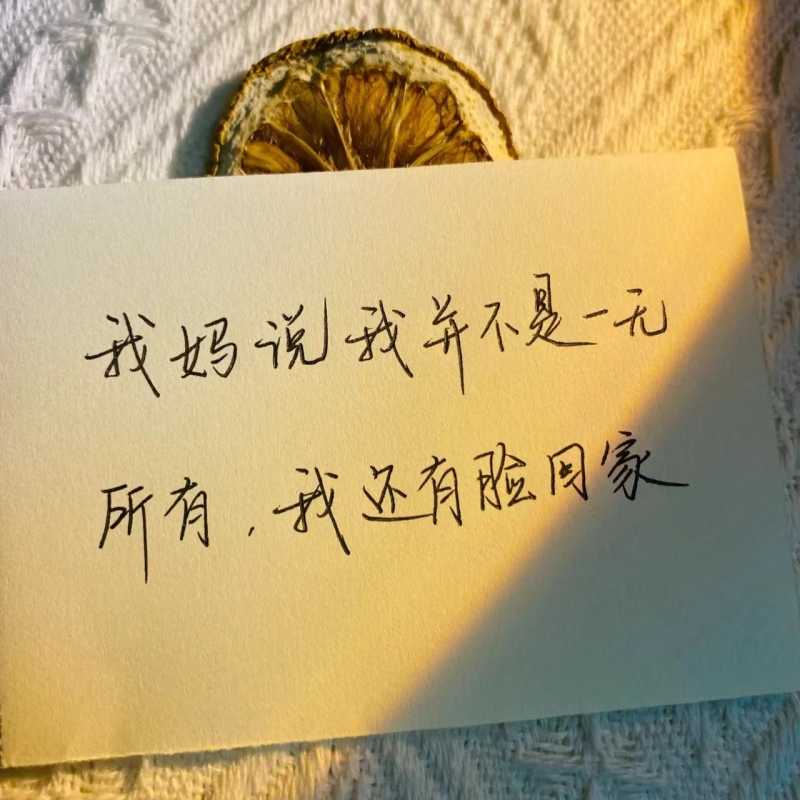 我妈说我并不是一无
所有，我还有脸回家